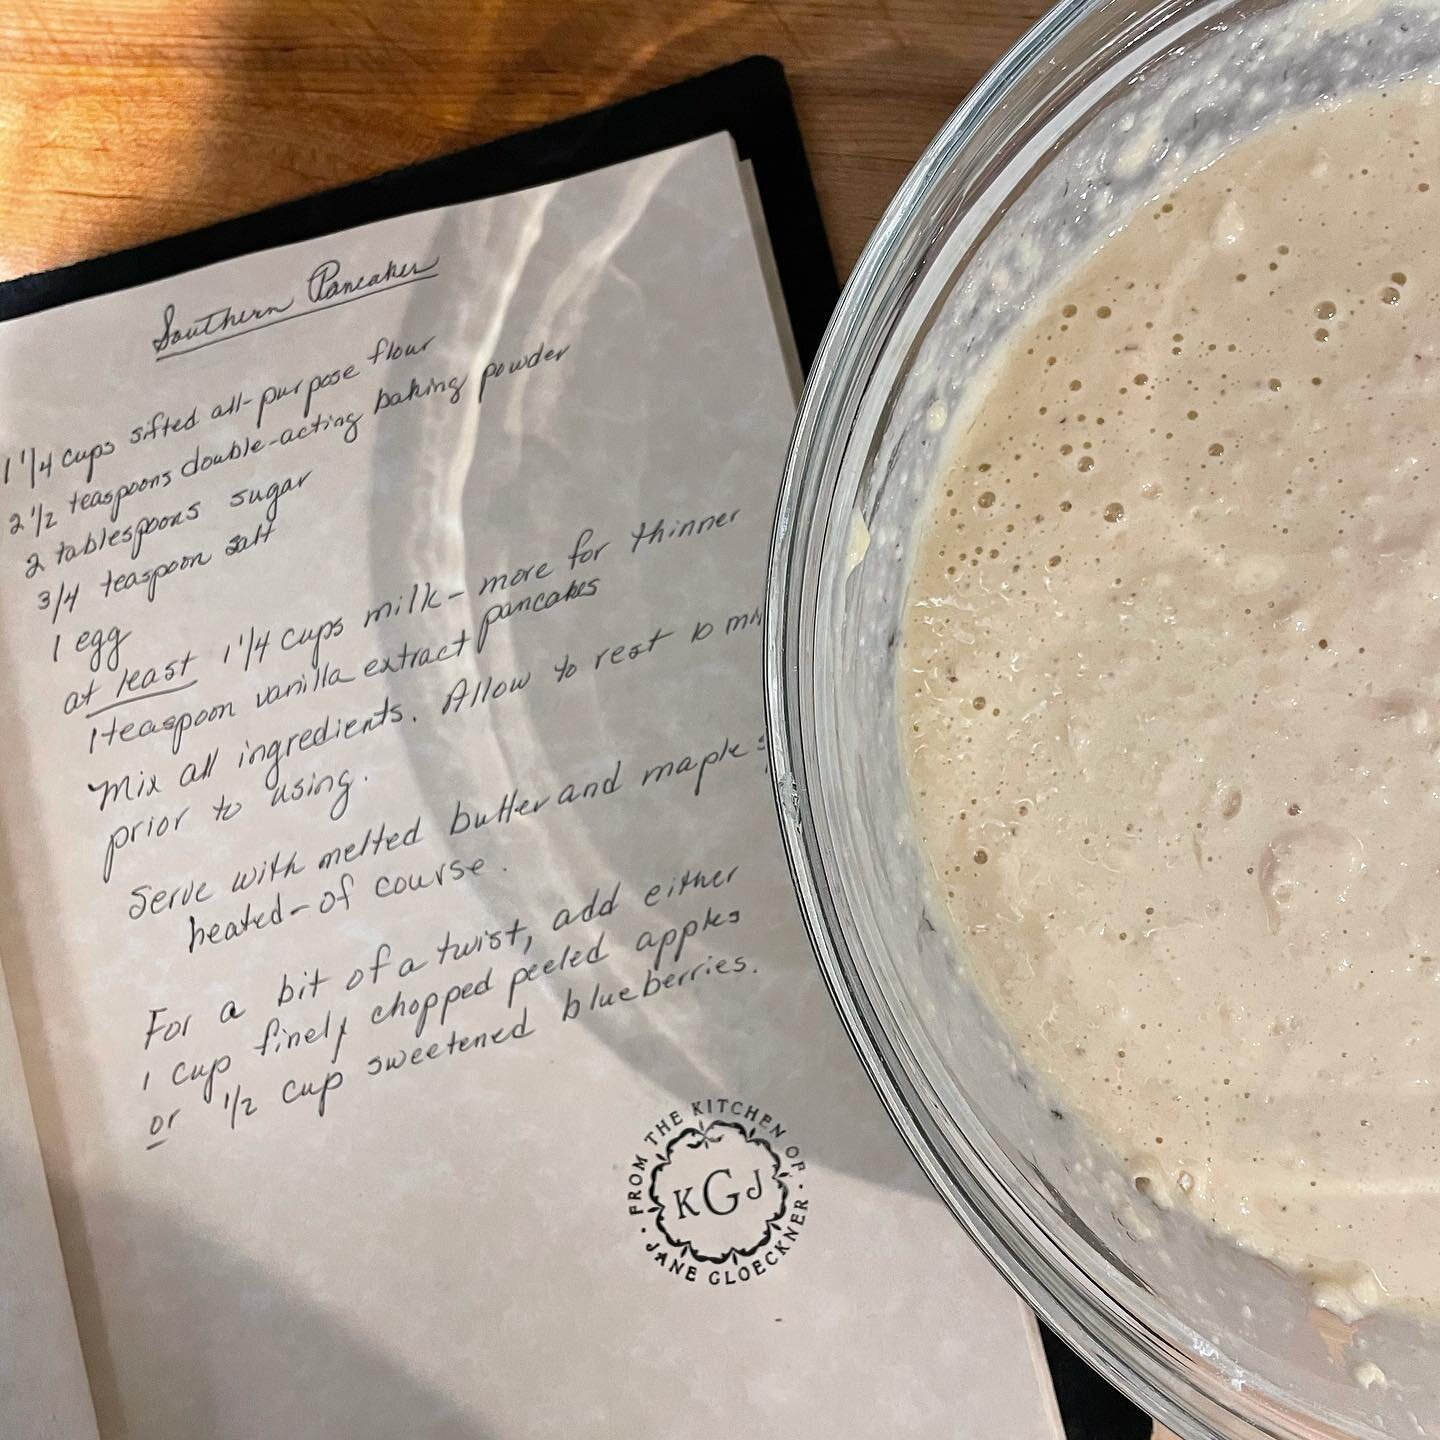 Southern Pancakes
1 1/4 cups sifted all-purpose flour
2 1/2 teaspoons double-acting baking powder
2 tablespoons sugar
3/4 teaspoon salt
1 egg
at least 1 1/4 cups milk - more for thinner
pancakes
1 teaspoon vanilla extract
Mix all ingredients. Allow to rest 10
prior to using.
Serve with melted butter and maple
heated - of course.
For a bit of a twist, add either
1 cup finely chopped peeled apples
or 1/2 cup sweetened blueberries.
FROM THE KITCHEN OF
KGJ
JANE GLOECKNER